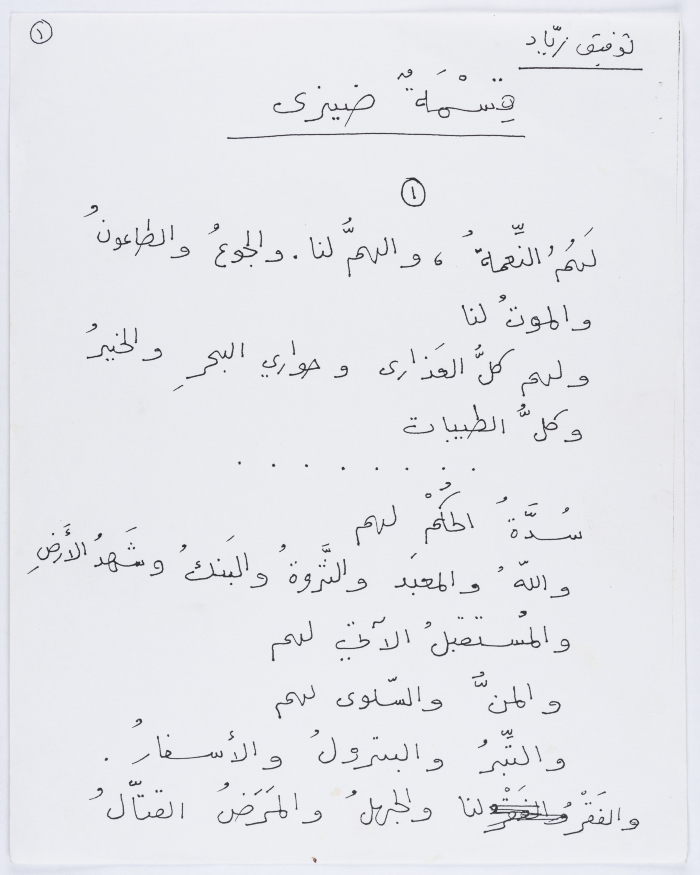 ١
توفيق زيّاد
قِسْمَةٌ ضيزى
١
لَهُمُ النِّعمةُ ، والهمُّ لنا . والجوعُ والطاعونُ
والموتُ لنا
ولهم كلُّ العَذارى وحواري البحرِ والخيرُ
وكلُّ الطيبات
. . . . . . . .
سُدَّةُ الحُكْمِ لهم
واللّهُ والمعبَد والثَّروةُ والبَنكُ وشَهدُ الأَرضِ
والمُستقبلُ الآتي لهم
والمنُّ والسّلوى لهم
والتِّبرُ والبترولُ والأسفارُ .
والفَقْرُ لنا والجهلُ والمَرَضُ القتّالُ